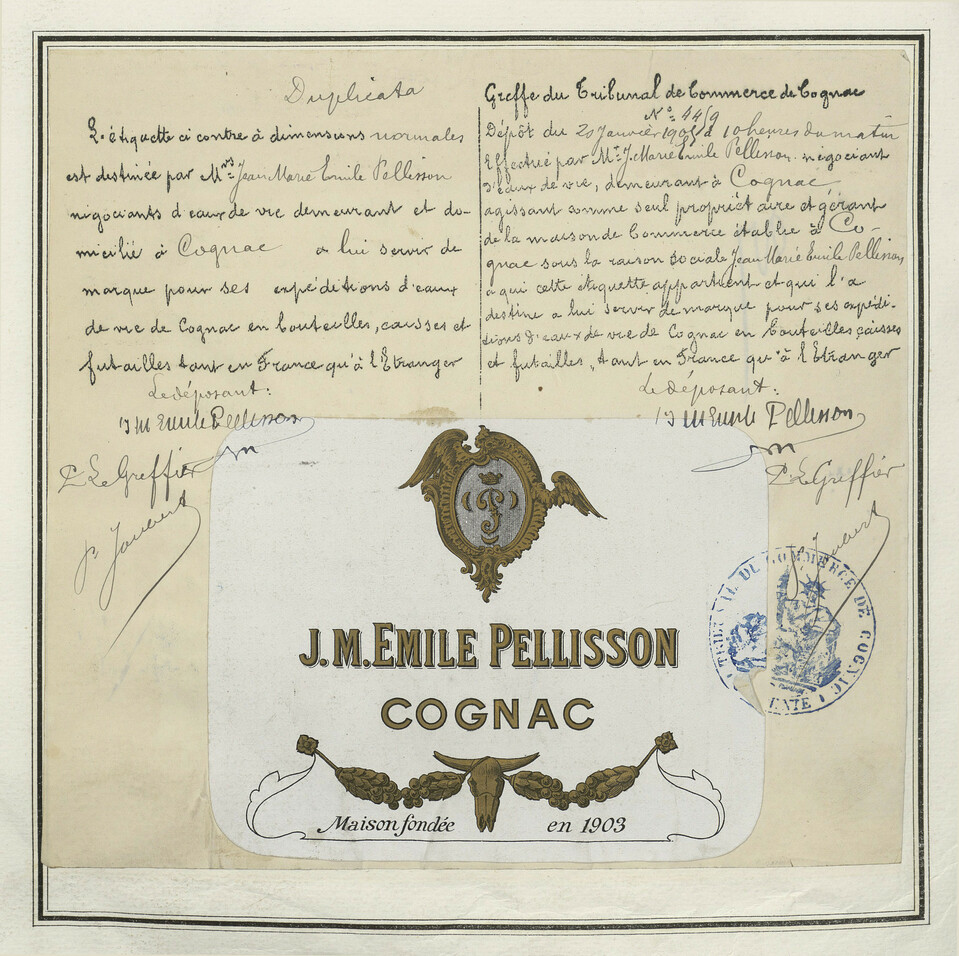 Duplicata
L'étiquette ci contre à dimensions normales
est destinée par Mrs Jean Marie Emile Pellisson
négociants d'eaux de vie demeurant et do-
micilié à Cognac a lui servir de
marque pour ses expéditions d'eaux
de vie de Cognac en bouteilles, caisses et
futailles tant en France qu'à l'Etranger
Le déposant:
J M Emile Pellisson
P. Le Greffier
Greffe du Tribunal de Commerce de Cognac
No 4459
Dépôt du Janvier à 10 heures du matin
Effectué par Mr J. Marie Emile Pellisson négociant
d'eaux de vie, demeurant à Cognac,
agissant comme seul propriétaire et gérant
de la maison de Commerce établie à Co-
gnac sous la raison sociale Jean Marie Emile Pellisson
a qui cette étiquette appartient et qui l'a
destine a lui servir de marque pour ses expédi-
tions d'eaux de vie de Cognac en bouteilles caisses
et futailles, tant en France qu'à l'Etranger
Le déposant:
J M Emile Pellisson
P. Le Greffier
TRIBUNAL DU COMMERCE DE COGNAC
J.M. EMILE PELLISSON
COGNAC
Maison fondée en 1903